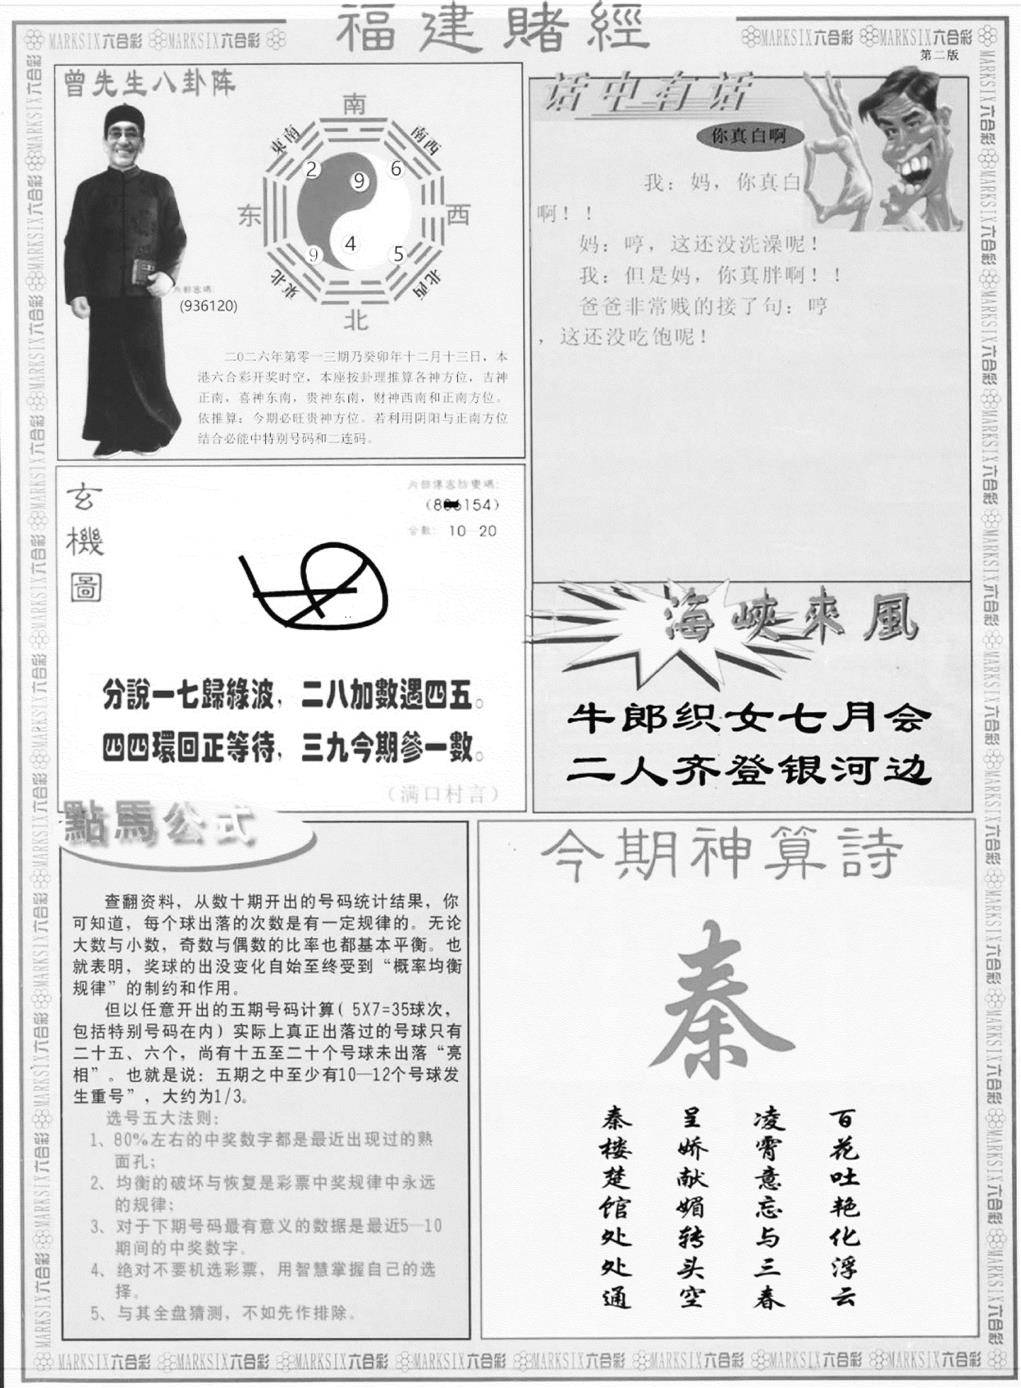 福建賭經
MARKSIX六合彩 MARKSIX六合彩
MARKSIX六合彩 MARKSIX六合彩
第二版
曾先生八卦阵
南
東南
南西
2
9
6
东
西
9
4
5
東北
北西
北
(936120)
二0二六年第零一三期乃癸卯年十二月十三日，本
港六合彩开奖时空，本座按卦理推算各神方位，吉神
正南，喜神东南，贵神东南，财神西南和正南方位。
依推算：今期必旺贵神方位。若利用阴阳与正南方位
结合必能中特别号码和二连码。
话中有话
你真白啊
我：妈，你真白
啊！！
妈：哼，这还没洗澡呢！
我：但是妈，你真胖啊！！
爸爸非常贱的接了句：哼
，这还没吃饱呢！
玄機圖
154)
10—20
分說一七歸綠波，二八加數遇四五。
四四環回正等待，三九今期參一數。
（满口村言）
海峽來風
牛郎织女七月会
二人齐登银河边
點馬公式
查翻资料，从数十期开出的号码统计结果，你
可知道，每个球出落的次数是有一定规律的。无论
大数与小数，奇数与偶数的比率也都基本平衡。也
就表明，奖球的出没变化自始至终受到“概率均衡
规律”的制约和作用。
但以任意开出的五期号码计算( 5X7=35球次，
包括特别号码在内）实际上真正出落过的号球只有
二十五、六个，尚有十五至二十个号球未出落“亮
相”。也就是说：五期之中至少有10—12个号球发
生重号”，大约为1/3。
选号五大法则：
1、80%左右的中奖数字都是最近出现过的熟
面孔；
2、均衡的破坏与恢复是彩票中奖规律中永远
的规律；
3、对于下期号码最有意义的数据是最近5—10
期间的中奖数字。
4、绝对不要机选彩票，用智慧掌握自己的选
择。
5、与其全盘猜测，不如先作排除。
今期神算詩
秦
百花吐艳化浮云
凌霄意忘与三春
呈娇献媚转头空
秦楼楚馆处处通
MARKSIX六合彩 MARKSIX六合彩 MARKSIX六合彩 MARKSIX六合彩 MARKSIX六合彩 MARKSIX六合彩 MARKSIX六合彩 MARKSIX六合彩